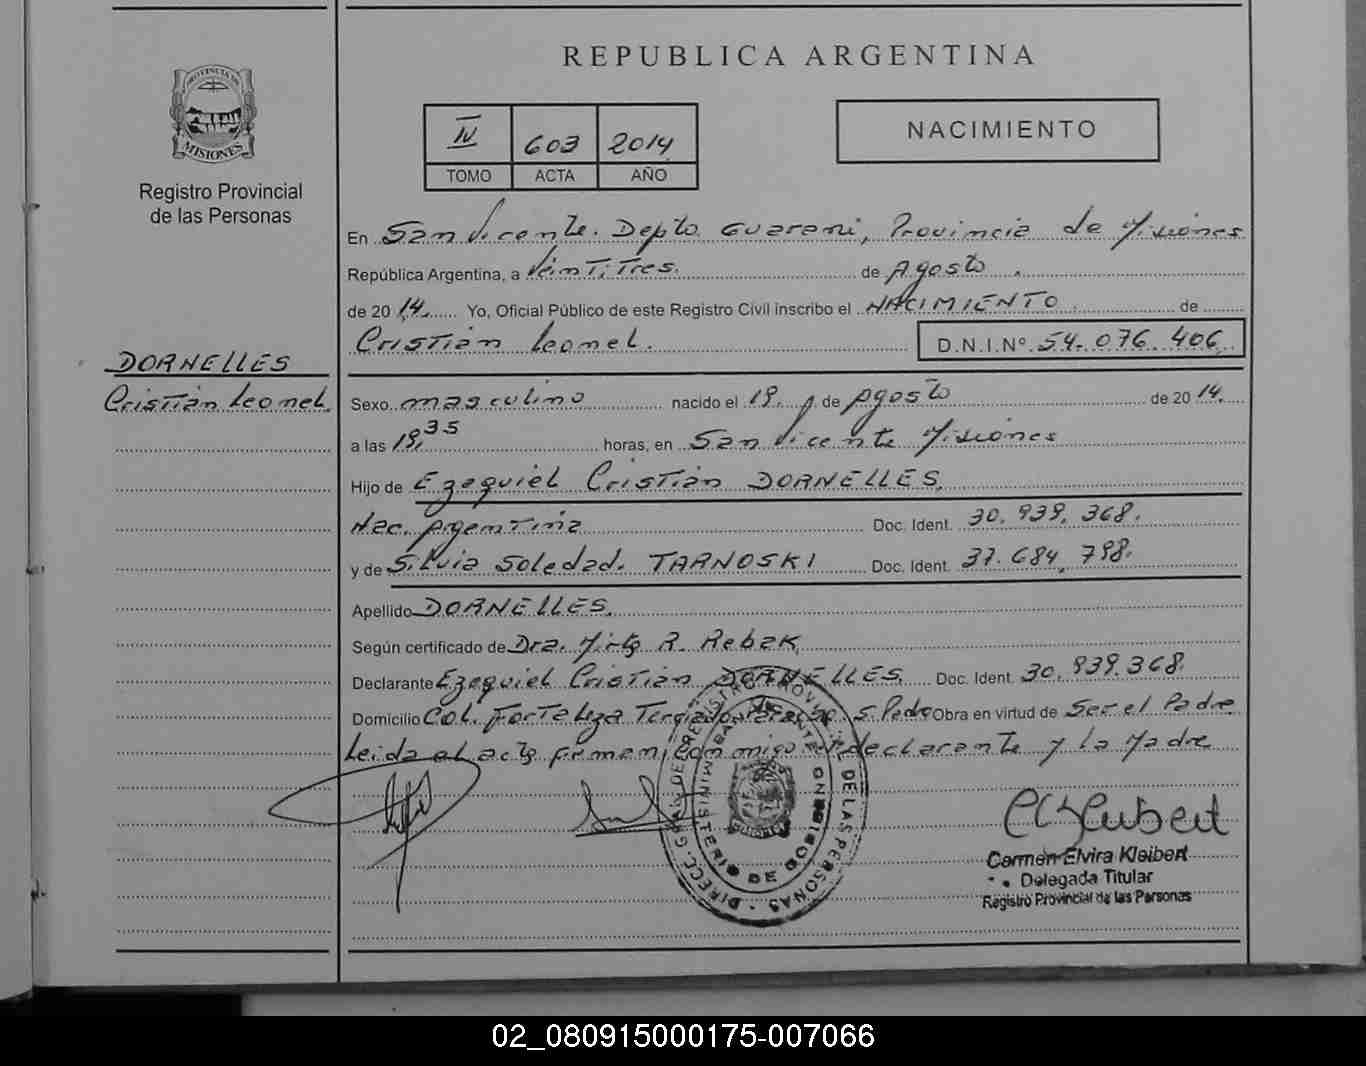 REPUBLICA ARGENTINA
PROVINCIA DE
MISIONES
Registro Provincial
de las Personas
IV 603 2014
TOMO ACTA AÑO
NACIMIENTO
En San Vicente. Depto Guarani, Provincia de Misiones
República Argentina, a Veintitres. de Agosto .
de 2014. Yo, Oficial Público de este Registro Civil inscribo el NACIMIENTO de
Cristian Leonel. D.N.I.Nº 54.076.406
DORNELLES
Cristian Leonel.
Sexo masculino nacido el 19. de Agosto de 2014.
a las 19,35 horas, en San Vicente Misiones
Hijo de Ezequiel Cristian DORNELLES.
Nac. Argentina Doc. Ident. 30.939.368.
y de Silvia Soledad. TARNOSKI Doc. Ident. 37.684.798.
Apellido DORNELLES.
Según certificado de Dra. Mirta R. Rebak
Declarante Ezequiel Cristian DORNELLES. Doc. Ident. 30.939.368
Domicilio Col. Fortaleza Terciado S. Pedro Obra en virtud de Ser el Padre
Leida el acta firman conmigo el declarante y la Madre
DIRECC. GRAL. DEL REGISTRO PROVINCIAL DE LAS PERSONAS
MINISTERIO DE GOBIERNO
Carmen Elvira Kleibert
Delegada Titular
Registro Provincial de las Personas
02_080915000175-007066